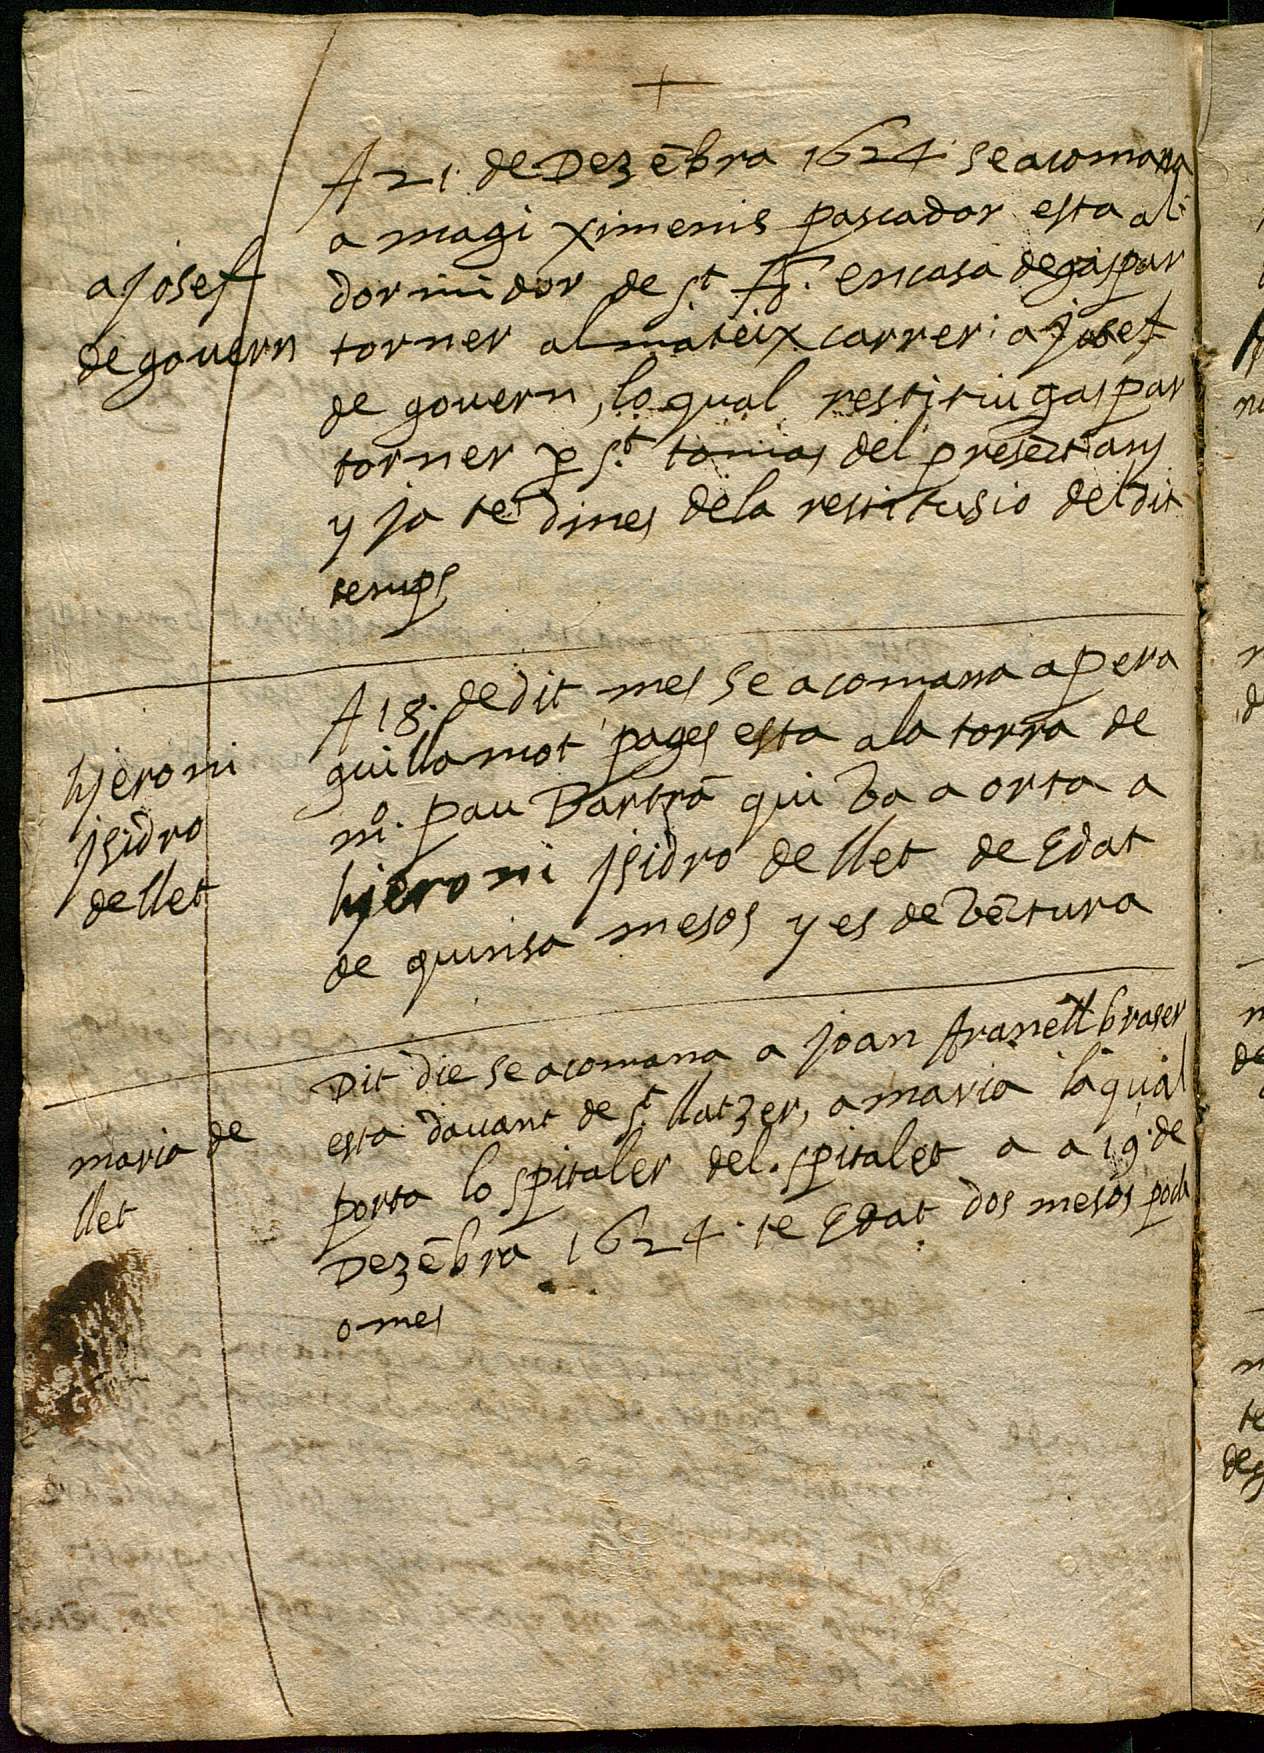 +
A 21 de Dezēbra 1624 se acomana
a magi ximenis pascador esta al
dormidor de St. fr. en casa de gaspar
torner al mateix carrer: a josef
de govern, lo qual restituiu gaspar
torner p St. tomas del presēt any
y ja te dines dela restitusio del dit
temps
a josef
de govern
A 18 de dit mes se acomana a pera
guillamot pages esta ala torra de
mo. pau Bartrā qui va a orta a
hjeroni jsidro de llet de Edat
de quinsa mesos y es de vētura
hjeroni
jsidro
de llet
Dit die se acomana a joan franell braser
esta davant de St. llatzer, a maria la qual
porta lo spitaler del spitalet a a 19 de
Dezēbra 1624 te Edat dos mesos poch
o mes
maria de
llet